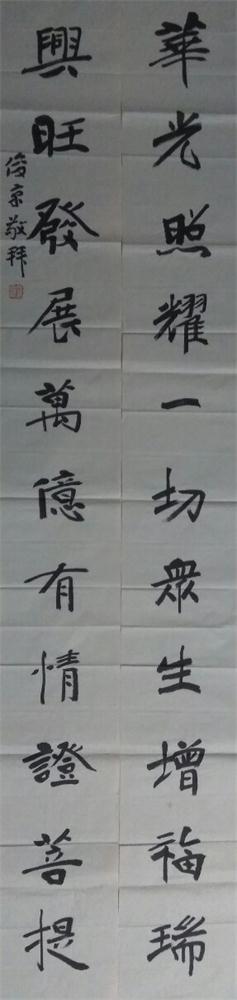 華光照耀一切眾生增福瑞
興旺發展萬億有情證菩提
俊京敬拜